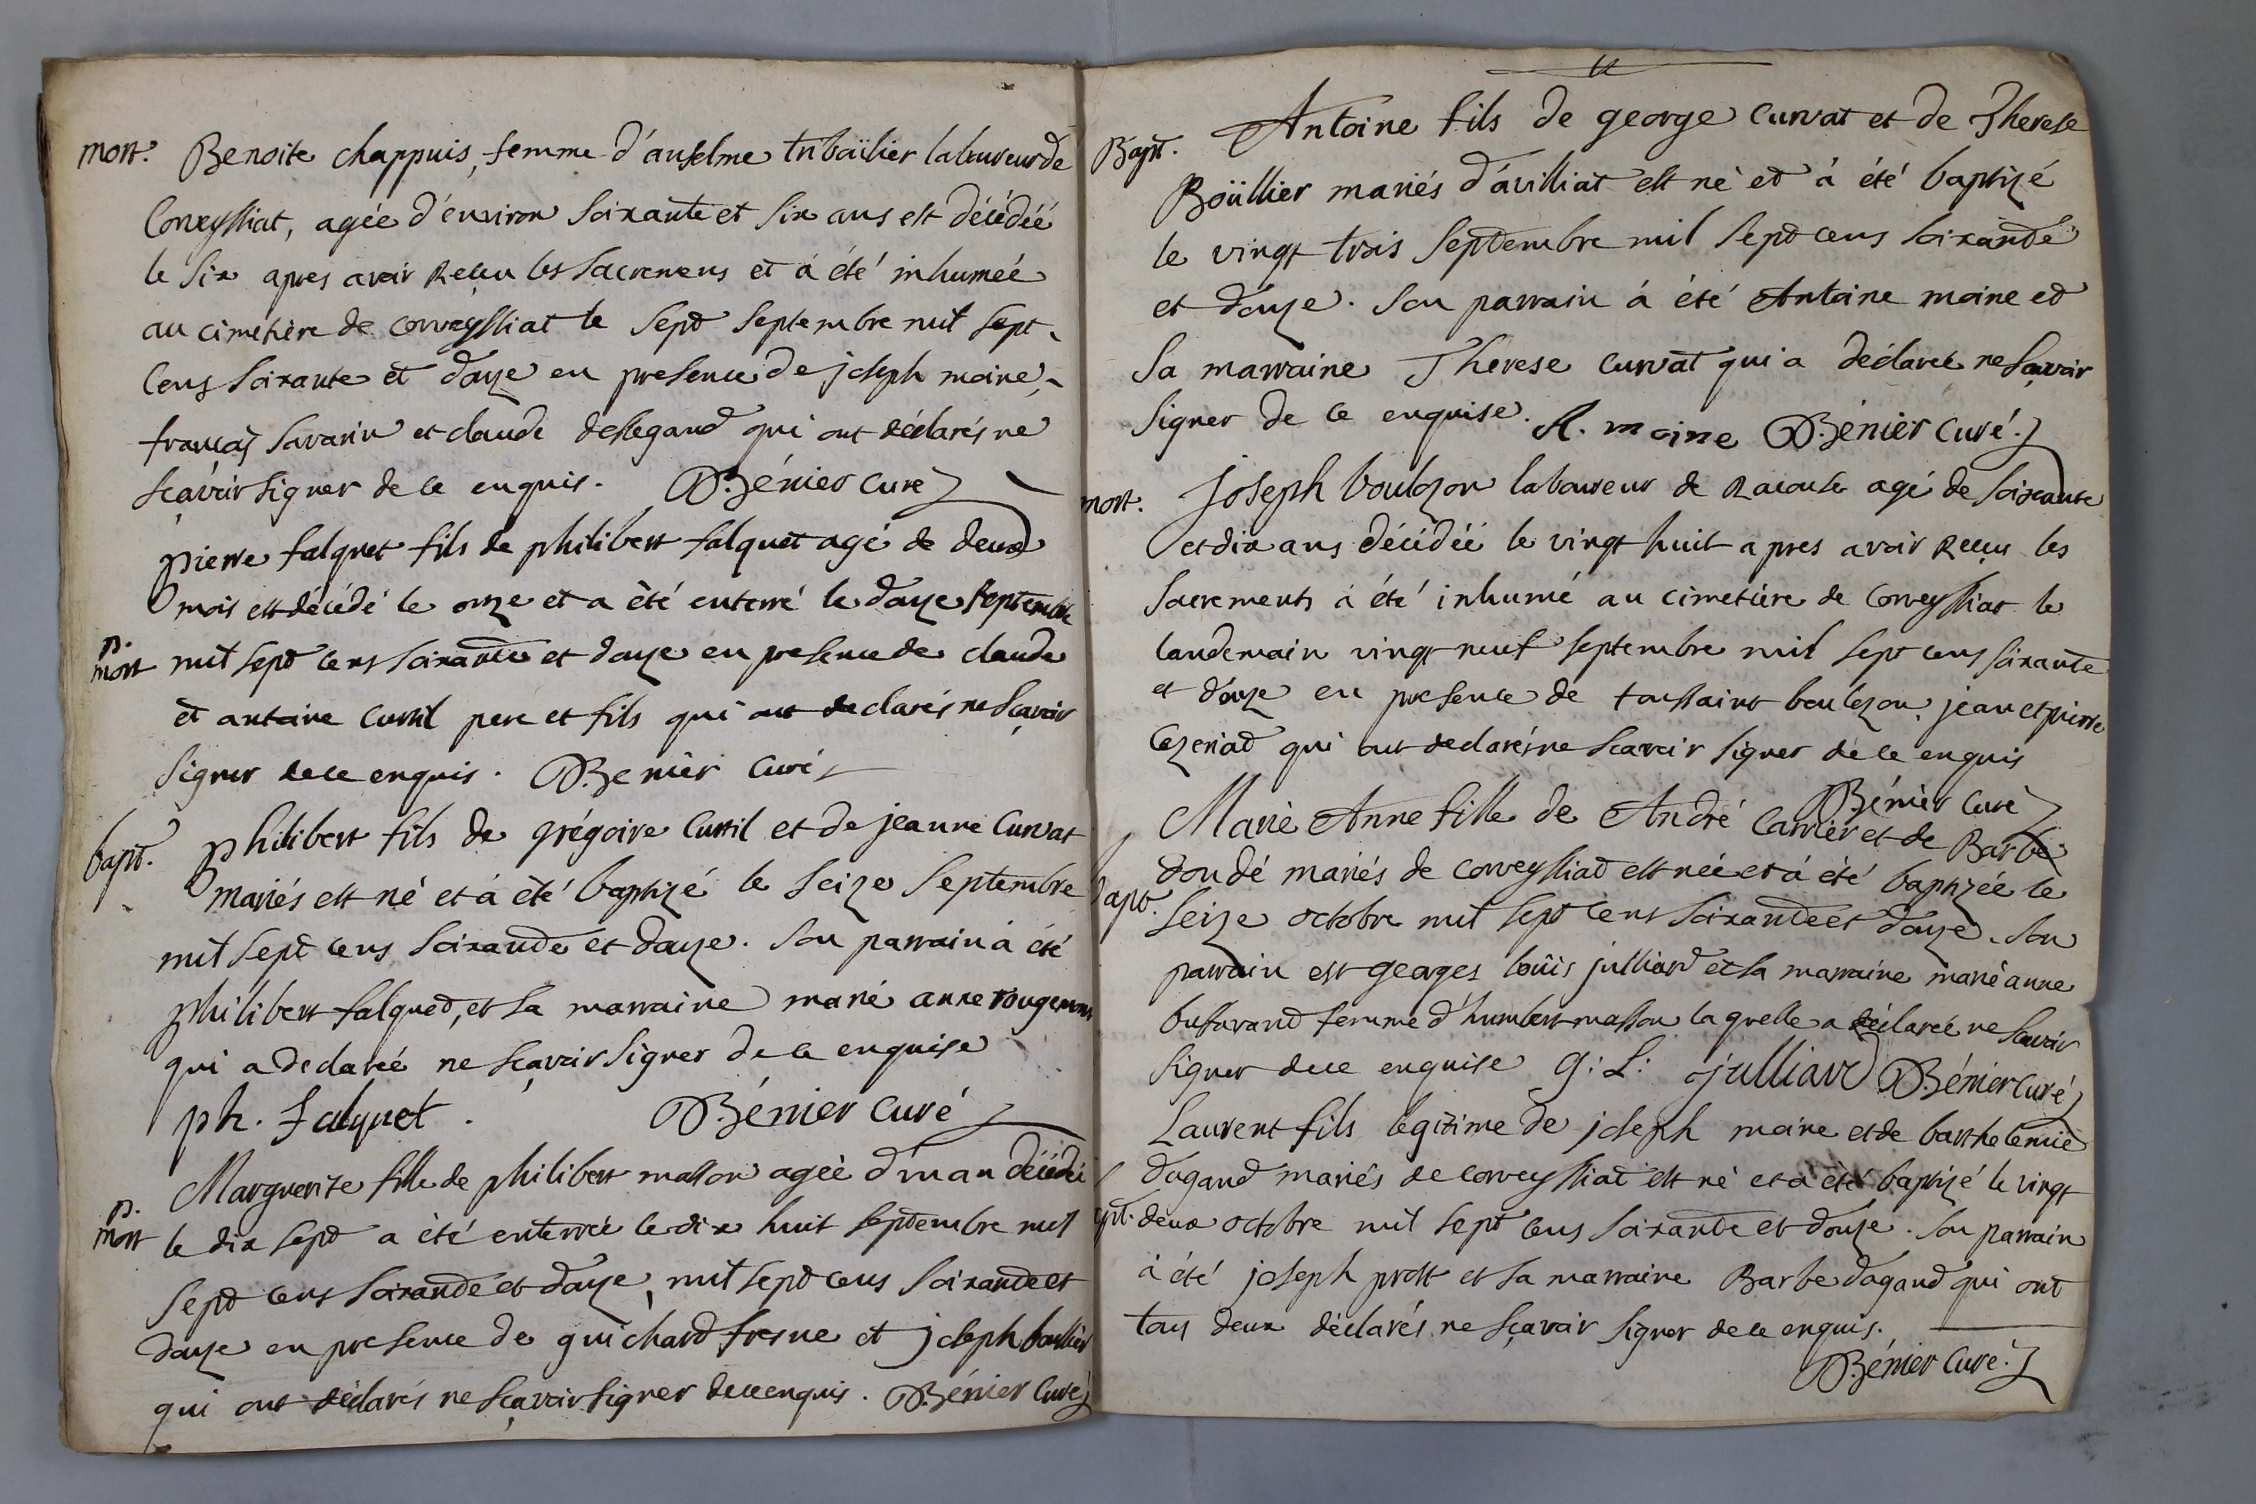 mort. Benoite chappuis, femme d'anselme tribaïlier laboureur de
Corveyssiat, agée d'environ soixante et six ans est décédéé
le six apres avoir Reçeu les sacremens et à été inhumeé
au cimetière de corveyssiat le sept septembre mil sept
cens soixante et douze en presence de joseph moine,
françois savarin et claude dessegand qui ont déclarés ne
sçavoir signer de ce enquis. D. Bénier curé
pierre falquet fils de philibert falquet agé de deux
mois est décédé le onze et a été enterré le douze septembre
p. mort mil sept cens soixante et douze en presence de claude
et antoine curtil pere et fils qui ont declarés ne sçavoir
signer de ce enquis. D. Benier curé
bapt. philibert fils de grégoire curtil et de jeanne curvat
mariés est né et à été baptizé le seize septembre
mil sept cens soixante et douze. son parrain à été
philibert falquet, et sa marraine marie anne rougemont
qui a declareé ne sçavoir signer de ce enquise
ph. falquet. D. Bénier curé
Marguerite fille de philibert masson agée d'un an décédée
p. mort le dix sept a été enterrée le dix huit septembre mil
sept cens soixante et douze, mil sept cens soixante et
douze en presence de guichard fresne et joseph boullier
qui ont déclarés ne sçavoir signer de ce enquis. D. Bénier curé
Bapt. Antoine fils de george curvat et de Therese
Boüillier mariés d'avilliat est né et à été baptizé
le vingt trois septembre mil sept cens soixante
et douze. son parrain à été Antoine moine et
sa marraine Therese curvat qui a déclareé ne sçavoir
signer de ce enquise. A. moine D. Bénier curé.
mort. joseph boulezon laboureur de Racouse agé de soixante
et dix ans décédéé le vingt huit apres avoir Reçeu les
sacrements à été inhumé au cimetière de Corveyssiat le
landemain vingt neuf septembre mil sept cens soixante
et douze en presence de toussaint boulezon, jean et pierre
cezeriat qui ont declarés ne scavoir signer de ce enquis
D. Bénier curé
Marie Anne fille de André Carrier et de Barbe
dondé mariés de corveyssiat est née et à été baptizée le
bapt. seize octobre mil sept cens soixante et douze. son
parrain est georges loüis julliard et sa marraine marie anne
buffavand femme d'humbert masson laquelle a déclareé ne scavoir
signer de ce enquise G: L: julliard D. Bénier curé
Laurent fils legitime de joseph moine et de barthelemie
dagand mariés de corveyssiat est né et à été baptizé le vingt
bapt. deux octobre mil sept cens soixante et douze. son parrain
à été joseph prost et sa marraine Barbe dagand qui ont
tous deux déclarés ne sçavoir signer de ce enquis.
D. Bénier curé.